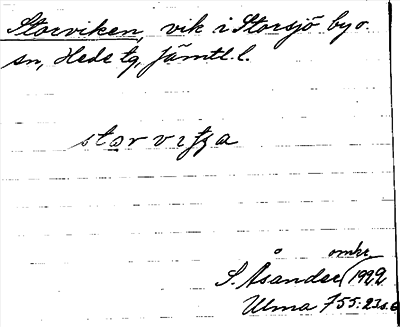 Storviken, vik i Storsjö by o.
sn, Hede tg, Jämtl. l.
storvitja
omkr.
S. Åsander (1922
Ulma 755:23 s. 6